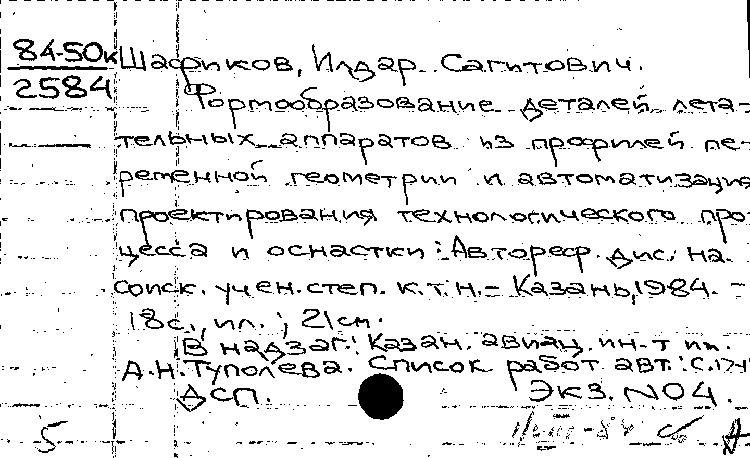 84-50к Шафиков, Илдар Сагитович.
2584
Формообразование деталей лета-
тельных аппаратов из профилей пе-
ременной геометрии и автоматизация
проектирования технологического про-
цесса и оснастки: Автореф. дис. на
соиск. учен. степ. к.т.н. - Казань, 1984. -
18с., ил.; 21см.
В надзаг.: Казан. авиац. ин-т им.
А.Н.Туполева. Список работ авт.: с.17-1
ДСП. Экз. №04.
5